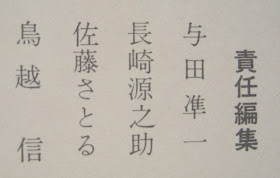 責任編集
与田凖一
長崎源之助
佐藤さとる
鳥越信